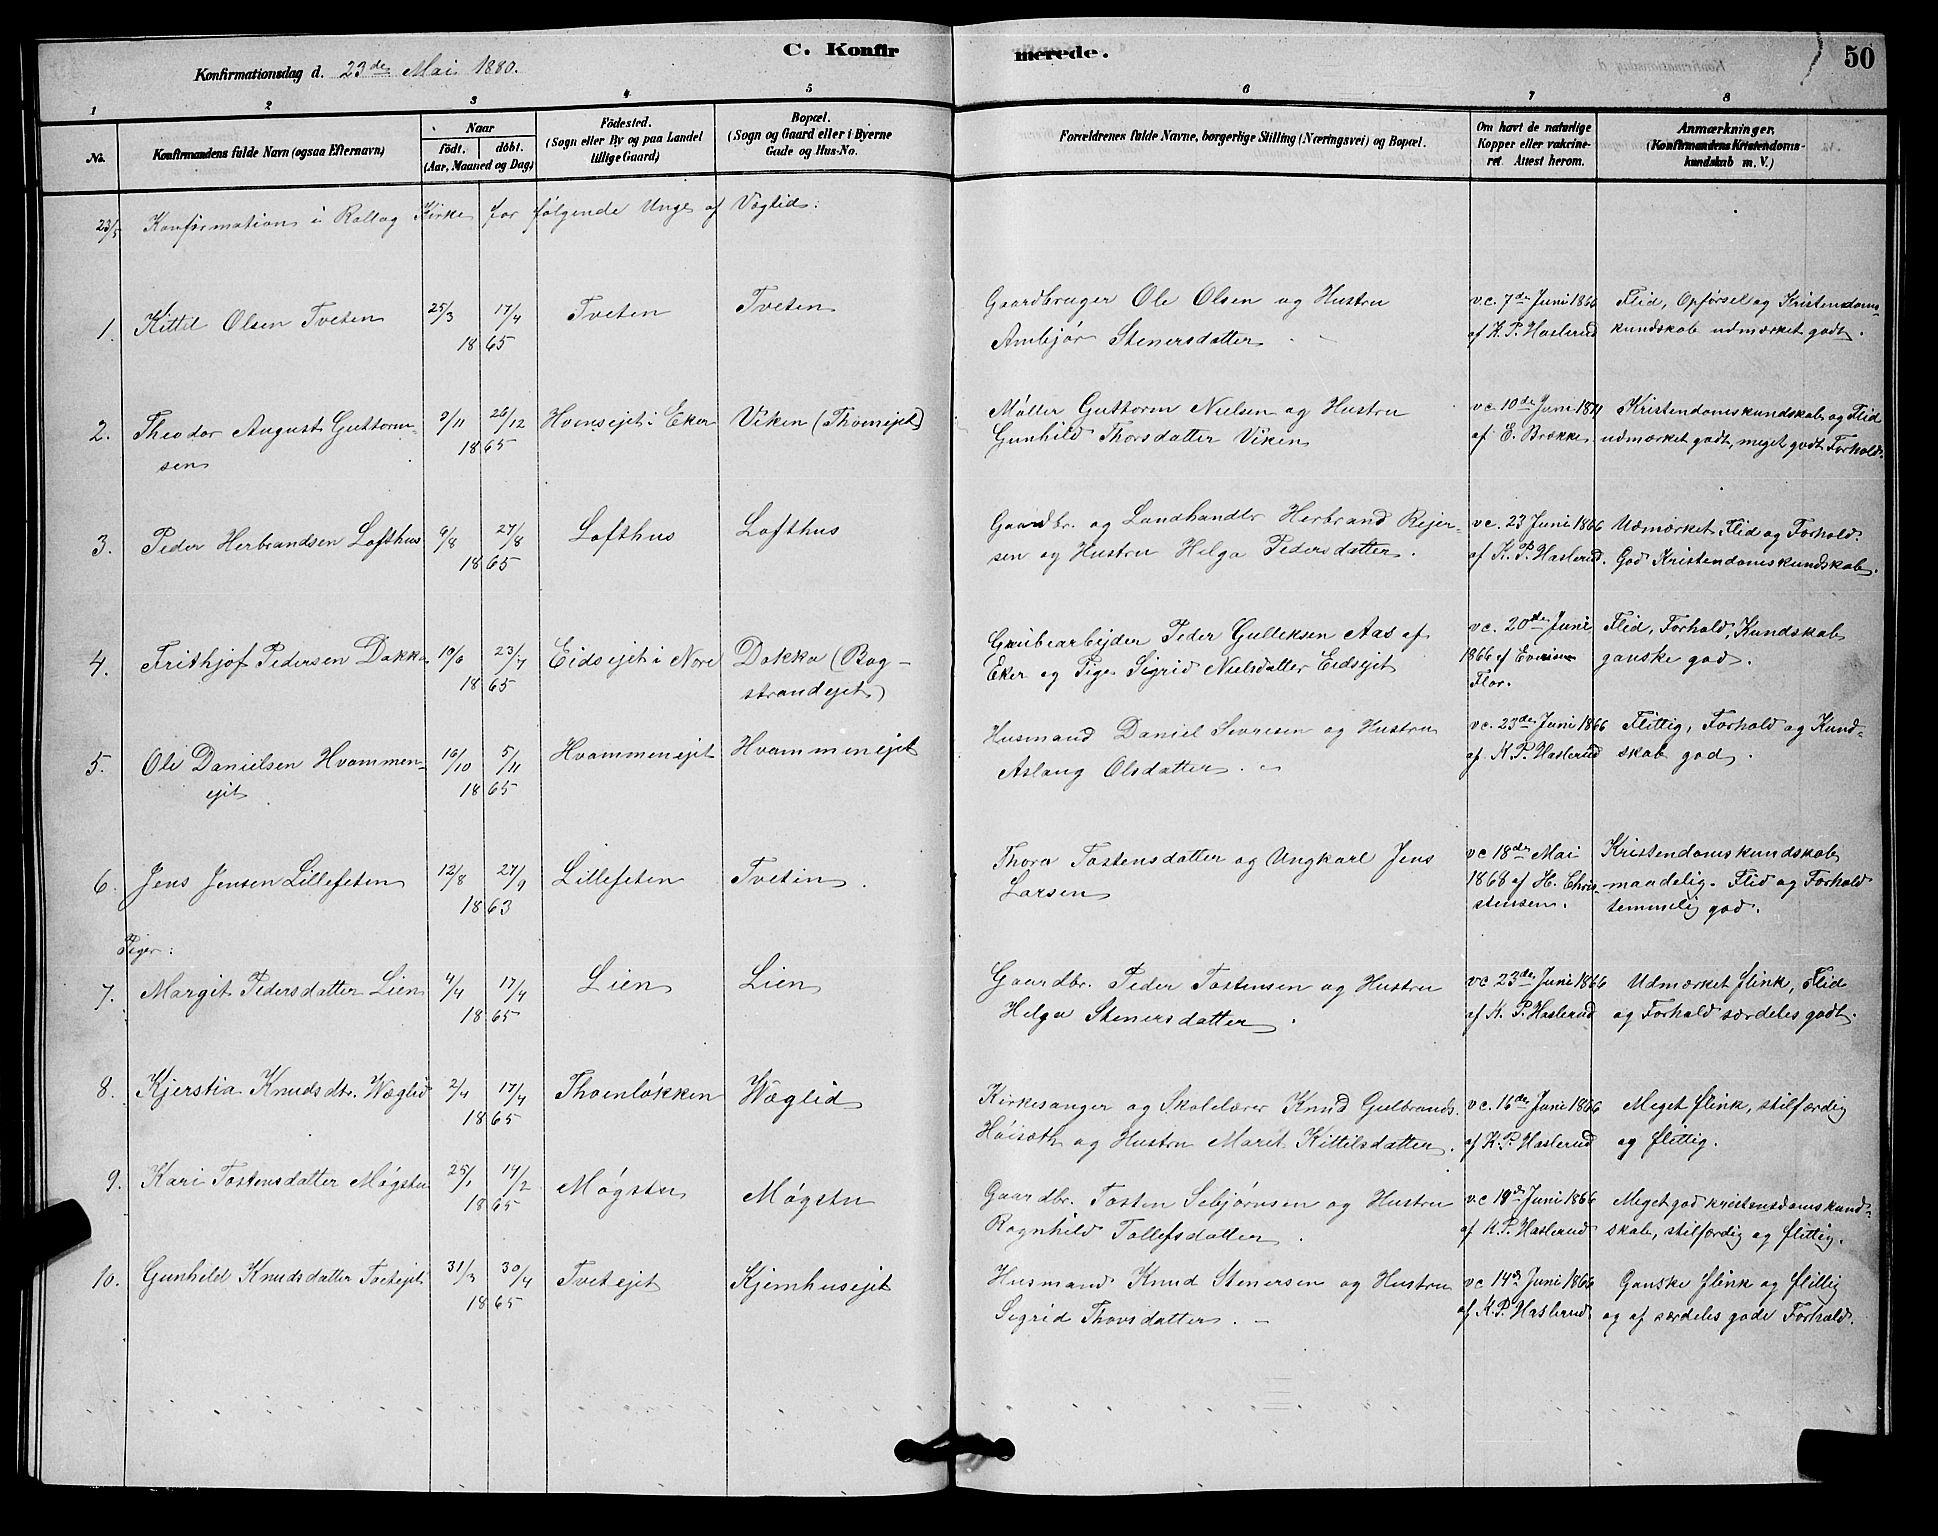 C. Konfirmerede.
50
Konfirmationsdag d. 23de Mai 1880.
1 2 3 4 5 6 7 8
No.
Konfirmandens fulde Navn (ogsaa Efternavn)
Naar
födt. döbt.
(Aar, Maaned og Dag)
Födested.
(Sogn eller By og paa Landet
tillige Gaard)
Bopæl.
(Sogn og Gaard eller i Byerne
Gade og Hus-No.
Forældrenes fulde Navne, borgerlige Stilling (Næringsvei) og Bopæl.
Om havt de naturlige
Kopper eller vakcine-
ret Attest herom.
Anmærkninger.
(Konfirmandens Kristendoms-
kundskab m. V.)
23/5 Konfirmation i Rollag Kirke for følgende Unge af Væglid:
1. Kittil Olsen Tveten 25/3 17/4 Tveten Tveten Gaardbruger Ole Olsen og Hustru v.c. 7de Juni 1866 Flid, Opførsel og Kristendoms-
1865 Ambjør Stenersdatter. af K. P. Haslerud kundskab udmærket godt.
2. Theodor August Guttorm- 3/11 26/12 Hvensejet i Eker Viken (Thoenejet) Møller Guttorm Nielsen og Hustru vc. 10de Juni 1871 Kristendomskundskab og Flid
sen 1865 Gunhild Thorsdatter Viken af E. Brække udmærket godt, meget godt Forhold.
3. Peder Herbrandsen Lofthus 9/8 27/8 Lofthus Lofthus Gaardbr. og Landhandler Herbrand Rejer- vc. 23 Juni 1866 Udmærket Flid og Forhold.
1865 sen og Hustru Helga Pedersdatter. af K. P. Haslerud. God Kristendomskundskab.
4. Frithjof Pedersen Dokka 10/6 23/7 Eidsejet i Nore Dokka (Bog- Grubearbejder Peder Gulleksen Aas af vc. 20de Juni Flid, Forhold, Kundskab
1865 strandejet) Eker og Pige Sigrid Nielsdatter Eidsejet 1866 af ganske god.
Flor.
5. Ole Danielsen Hvammen- 16/10 5/11 Hvammenejet Hvammenejet Husmand Daniel Sevresen og Hustru vc. 23de Juni 1866 Flittig, Forhold og Kund-
ejet 1865 Aslaug Olsdatter. af K. P. Haslerud skab god.
6. Jens Jensen Lillefeten 12/8 27/9 Lillefeten Tveten. Thora Tostensdatter og Ungkarl Jens vc 18de Mai Kristendomskundskab
1863 Larsen 1868 af H. Chri- maadelig. Flid og Forhold
stensen. temmelig god.
Piger:
7. Margit Pedersdatter Lien 4/4 17/4 Lien Lien Gaardbr. Peder Tostensen og Hustru vc 23de Juni 1866 Udmærket flink, Flid
1865 Helga Stenersdatter. af K. P. Haslerud og Forhold særdeles godt.
8. Kjerstia Knudsdtr. Wæglid 2/4 17/4 Thoenløkken Wæglid Kirkesanger og Skolelærer Knud Gulbrands. vc. 16de Juni 1866 Meget flink, stilfærdig
1865 Høiseth og Hustru Marit Kittilsdatter. af K. P. Haslerud og flittig.
9. Kari Tostensdatter Møgstu 25/1 19/2 Møgstu Møgstu Gaardbr. Tosten Sebjørnsen og Hustru vc 19de Juni 1866 Meget god kristendomskund-
1865 Ragnhild Tollefsdatter. af K. P. Haslerud skab, stilfærdig og flittig.
10. Gunhild Knudsdatter Tvetejet 31/3 30/4 Tvetejet Kjemhusejet Husmand Knud Stenersen og Hustru vc 14de Juni 1866 Ganske flink og flittig
1865 Sigrid Thorsdatter. af K. P. Haslerud. og af særdeles gode Forhold.